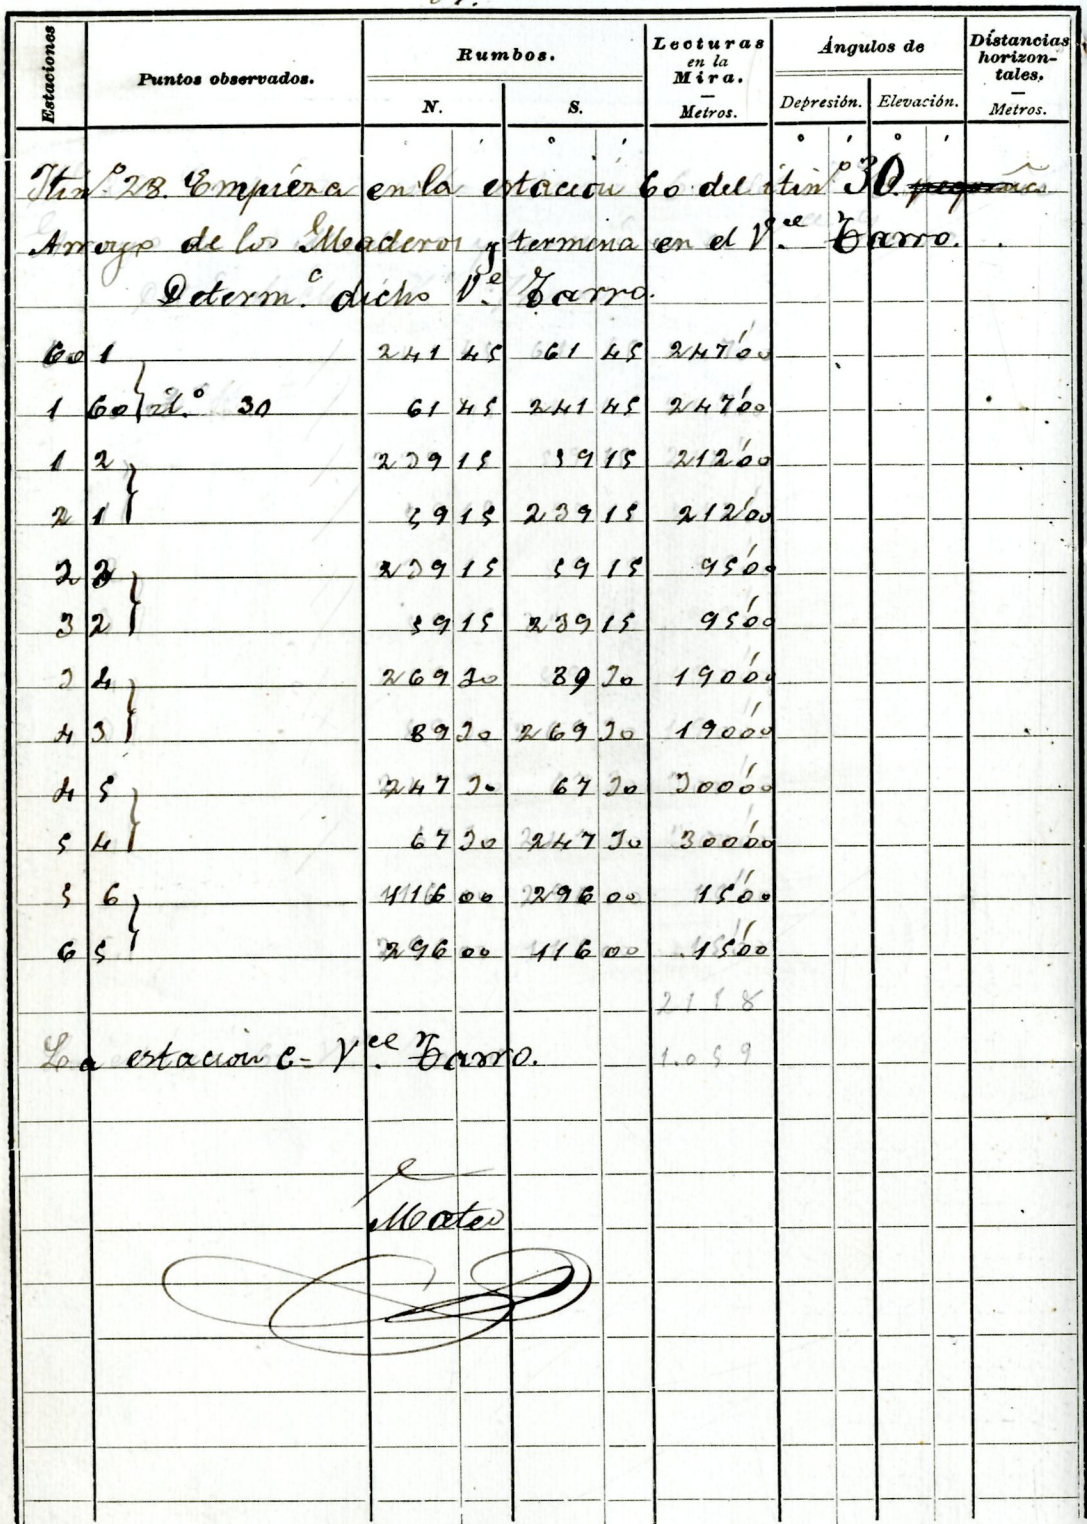 Estaciones
Puntos observados.
Rumbos.
N.
S.
Lecturas en la Mira.
Metros.
Ángulos de
Depresión. Elevación.
Distancias horizontales.
Metros.
° ' ° ' ° ' ° '
Itinº 28. Empieza en la estación 60 del itinº 30
Arroyo de los Meaderos y termina en el Vce Tarro.
Determ.ⁿ dicho Vce Tarro.
60 1 241 45 61 45 247'00
1 60 it.º 30 61 45 241 45 247'00
1 2 239 15 59 15 212'00
2 1 59 15 239 15 212'00
2 3 239 15 59 15 95'00
3 2 59 15 239 15 95'00
3 4 269 30 89 30 190'00
4 3 89 30 269 30 190'00
4 5 247 30 67 30 300'00
5 4 67 30 247 30 300'00
5 6 116 00 296 00 15'00
6 5 296 00 116 00 15'00
2118
La estacion 6 = Vce Tarro. 1.059
Mateo